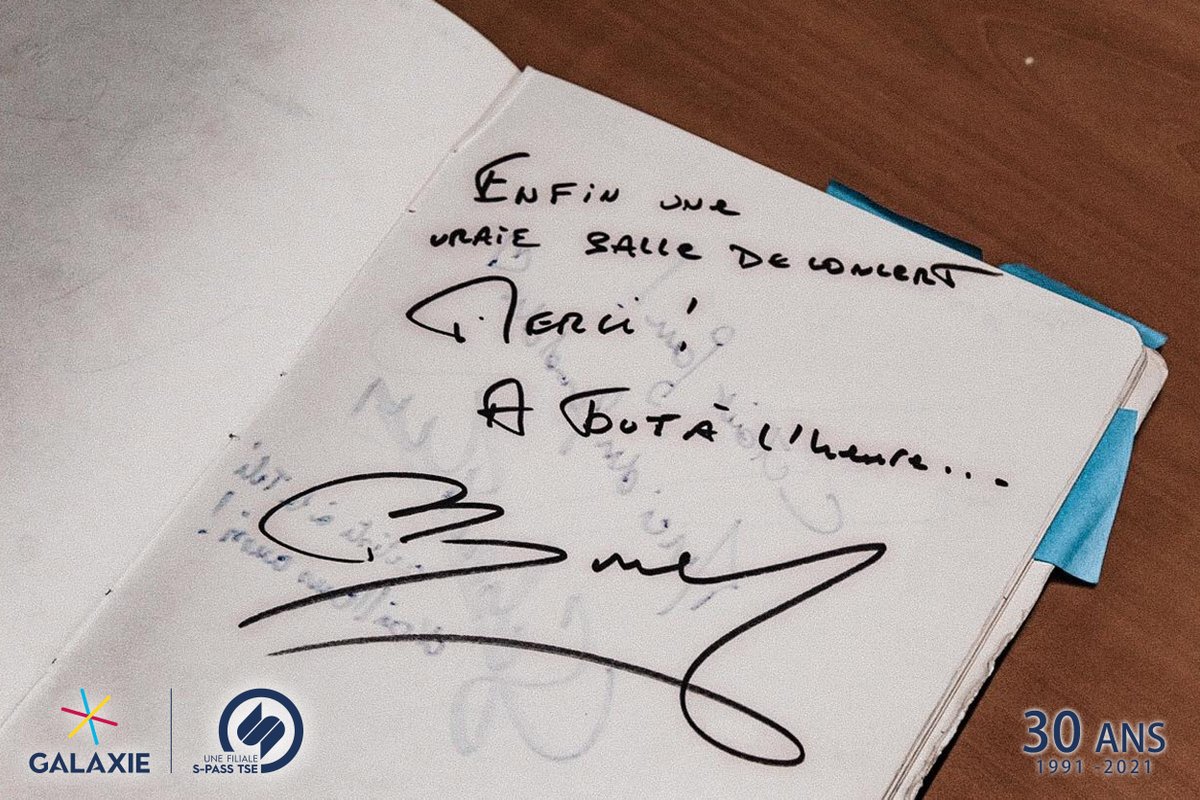 ENFIN UNE
VRAIE SALLE DE CONCERT
MERCI !
A TOUT À L'heure...
GALAXIE
UNE FILIALE
S-PASS TSE
30 ANS
1991 -2021